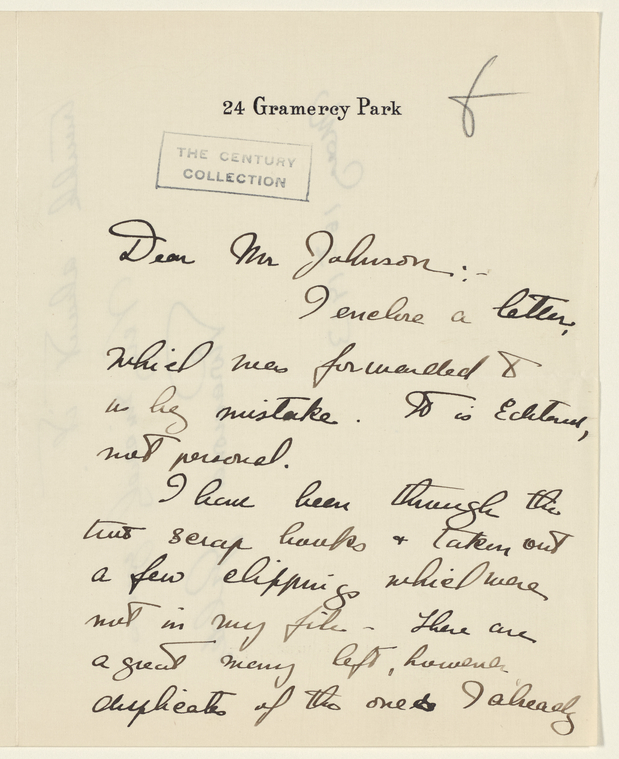 24 Gramercy Park
THE CENTURY
COLLECTION
Dear Mr Johnson:-
I enclose a letter,
which was forwarded to
us by mistake. It is Editorial,
not personal.
I have been through the
two scrap books & taken out
a few clippings which were
not in my file - There are
a great many left, however
duplicates of the ones I already